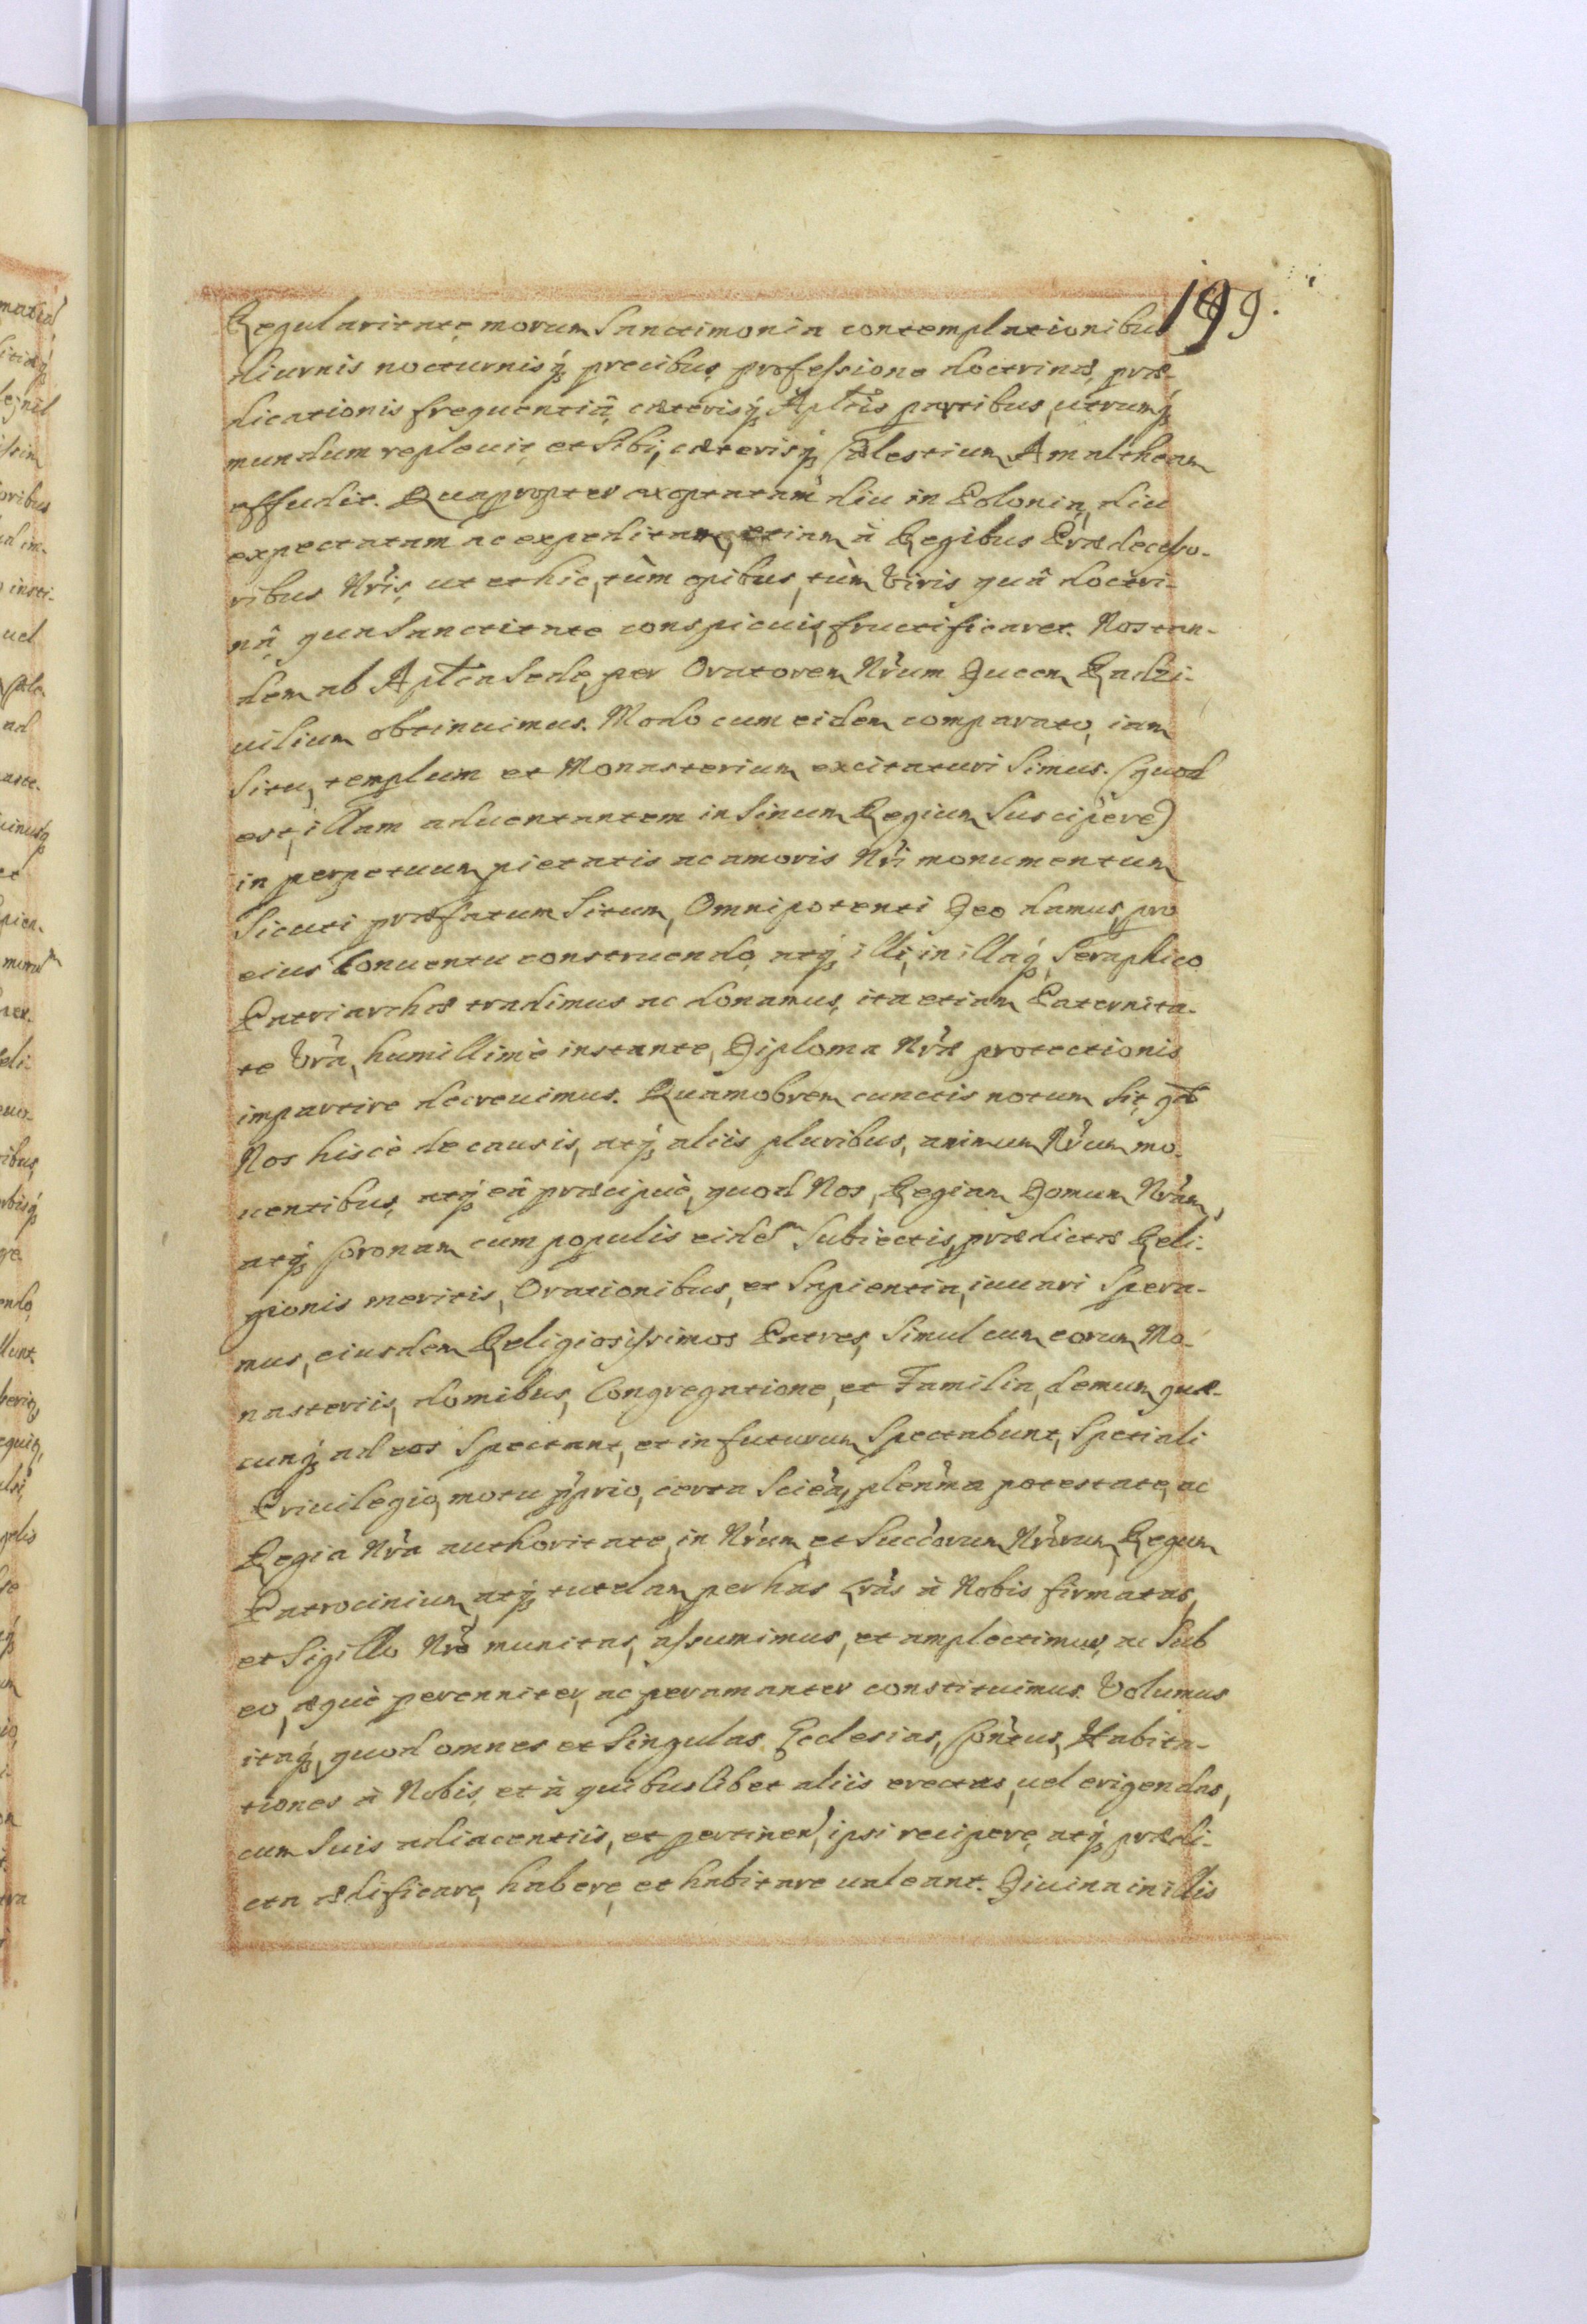 199.
Regularitate, morum Sanctimonia contemplationibus
diurnis nocturnisq́; precibus, professione doctrinæ, præ-
dicationis frequentiâ, cæterisq́; Apl̃cis partibus, utrumq́;
mundum repleuit, et Sibi, cæterisq́; Cælestium Amaltheam
effudit. Quapropter exoptatam diu in Polonia, diu
expectatam ac expeditam, etiam à Regibus Prædecesso-
ribus Nr̃is, ut et hic, tùm opibus, tùm Viris quâ doctri-
nâ, qua Sanctitate conspicuis, fructificaret. Nos tan-
dem ab Apl̃ca Sede, per Oratorem Nr̃um Ducem Radzi-
uilium obtinuimus. Modo cum eidem comparato, iam
Situ, templum et Monasterium excitaturi Simus. (quod
est, illam aduentantem in Sinum Regium Suscipere)
in perpetuum pietatis ac amoris Nr̃i monumentum
Sicuti præfatum Situm, Omnipotenti Deo damus, pro
eius Conuentu construendo, atq́; illi, in illaq́; Seraphico
Patriarchæ tradimus ac donamus, ita etiam Paternita-
te Vr̃a, humillimè instante, Diploma Nr̃æ protectionis
impartire decreuimus. Quamobrem cunctis notum Sit, qd̃
Nos hiscè de causis, atq́; aliis pluribus, animum Nr̃um mo-
uentibus, atq́; eâ præcipuè, quod Nos, Regiam Domum Nr̃am,
atq́; Coronam cum populis eidem Subiectis, prædictæ Reli-
gionis meritis, Orationibus, et Sapientia, iuuari Spera-
mus, eiusdem Religiosissimos Patres, Simul cum eorum Mo-
nasteriis, domibus, Congregatione, et Familia, demum quæ-
cunq́; ad eos Spectant, et in futurum Spectabunt, Spetiali
Priuilegio, motu p̃prio, certa Sciẽa, plenr̃ma potestate, ac
Regia Nr̃a authoritate, in Nr̃um, et Succ̃orum Nr̃orum, Regum
Patrocinium, atq́; tutelam per has Lr̃as à Nobis firmatas,
et Sigillo Nr̃o munitas, assumimus, et amplectimus, ac Sub
eo, æquè perenniter, ac peramanter constituimus. Volumus
itaq́;, quod omnes et Singulas Ecclesias, Con̄tus, Habita-
tiones à Nobis, et à quibuslibet aliis erectas, uel erigendas,
cum Suis adiacentiis, et pertinen̄, ipsi recipere, atq́; prædi-
cta ædificare, habere, et habitare ualeant. Diuina in illis